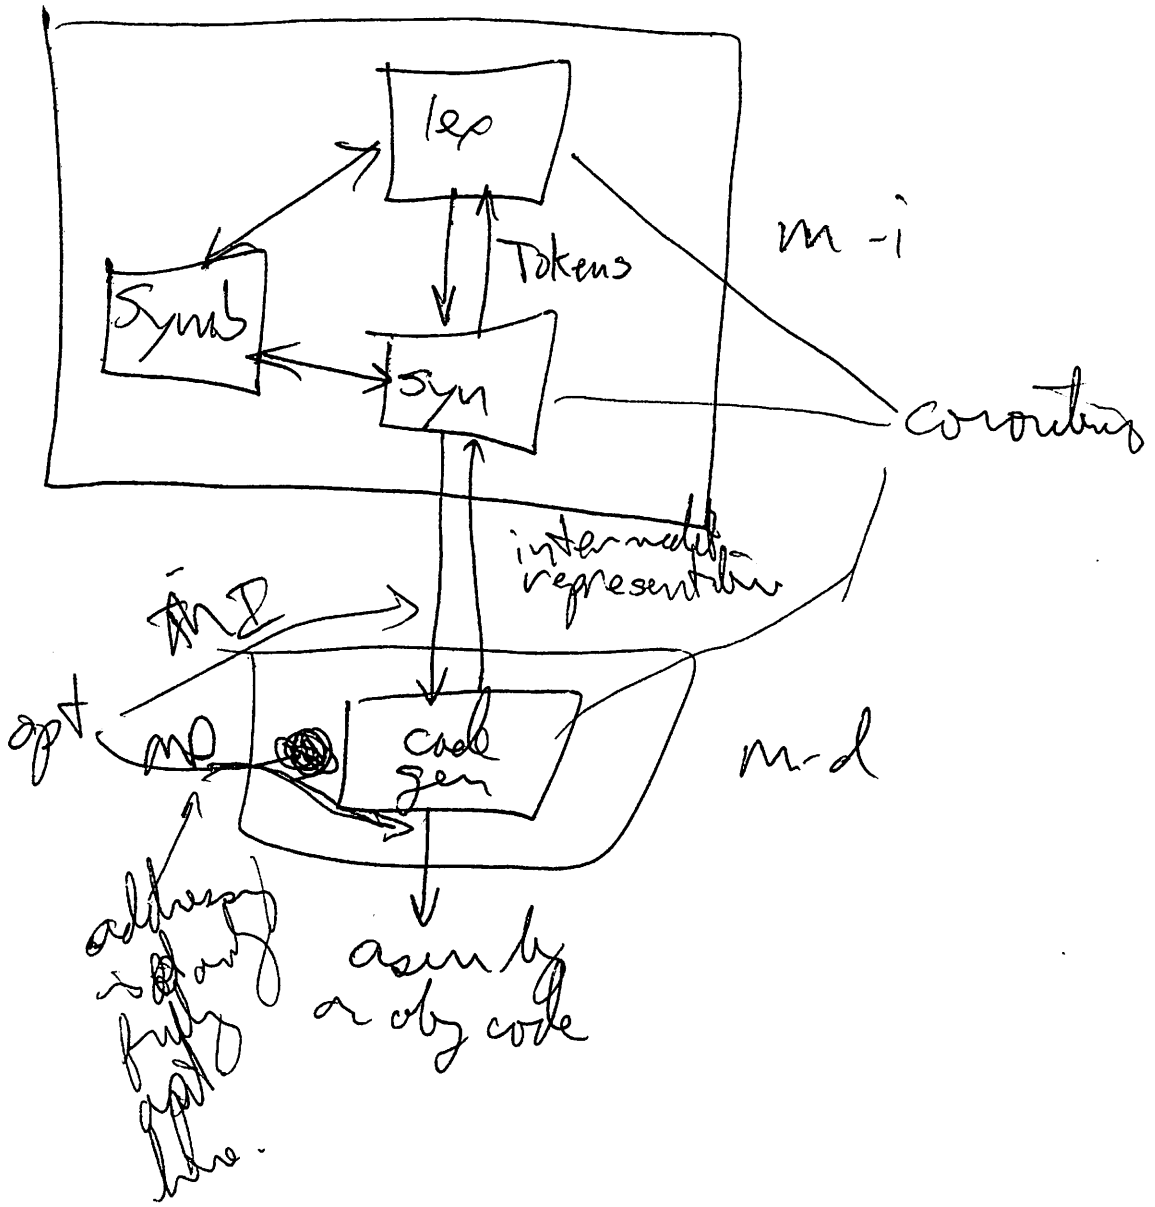 lex
m-i
Tokens
Symb
Syn
coroutines
intermediate
representation
MI
opt
MD
code
gen
m-d
addressing
is only
fully
opt
here.
assembly
or obj code